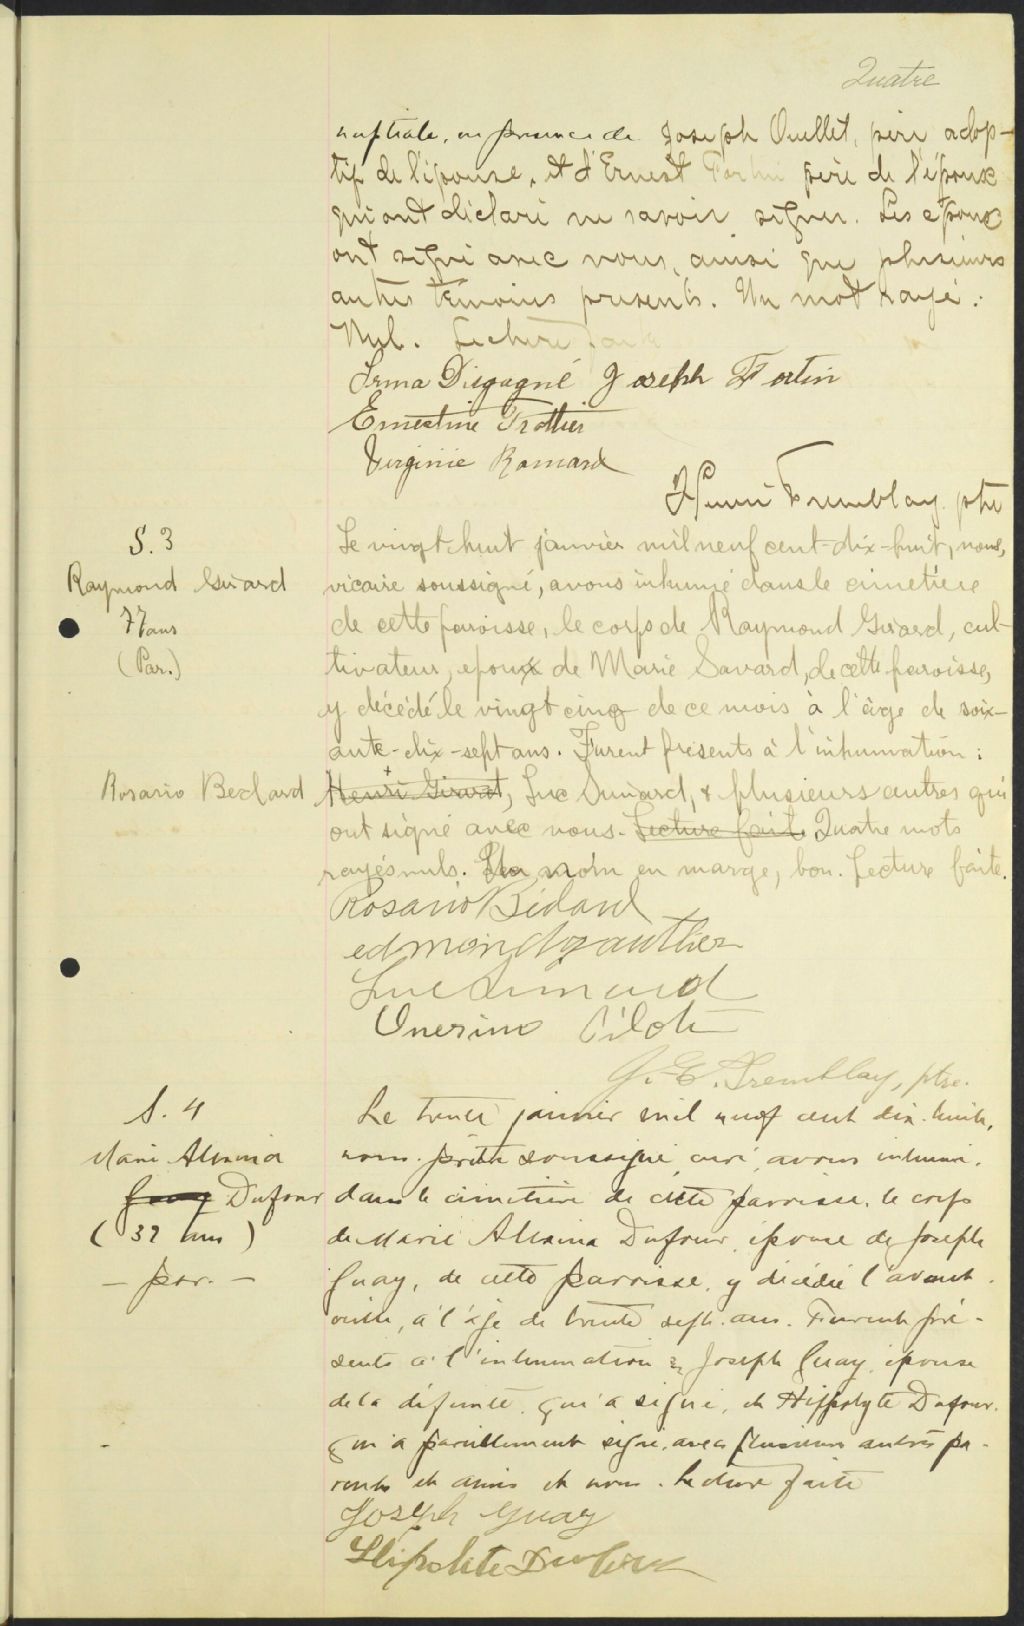 Quatre
nuptiale, en présence de Joseph Ouellet, père adop-
tif de l'épouse, et d'Ernest Fortin père de l'époux
qui ont déclaré ne savoir signer. Les époux
ont signé avec nous, ainsi que plusieurs
autres témoins présents. Un mot rayé :
Nul. Lecture faite
Irma Digagné Joseph Fortin
Ernestine Trottier
Virginie
Henri Tremblay ptre
S. 3
Raymond Girard
77 ans
(Par.)
Le vingt-huit janvier mil neuf cent-dix-huit, nous,
vicaire soussigné, avons inhumé dans le cimetière
de cette paroisse, le corps de Raymond Girard, cul-
tivateur, époux de Marie Savard, de cette paroisse,
y décédé le vingt cinq de ce mois à l'âge de soix-
ante-dix-sept ans. Furent présents à l'inhumation :
Rosario Bedard
Henri Girard, Luc Simard, & plusieurs autres qui
ont signé avec nous. Lecture faite Quatre mots
rayés nuls. Un nom en marge, bon. Lecture faite.
Rosario Bédard
edmond gauthier
Luc Simard
Onesime Pilote
J.-E. Tremblay, ptre.
S. 4
Marie Almina
Guay Dufour
(37 ans)
— par. —
Le trente janvier mil neuf cent dix-huit,
nous prêtre soussigné, curé, avons inhumé
dans le cimetière de cette paroisse, le corps
de Marie Almina Dufour, épouse de Joseph
Guay, de cette paroisse, y décédée l'avant
veille, à l'âge de trente sept ans. Furent pré-
sents à l'inhumation : Joseph Guay, époux
de la défunte, qui a signé, et Hippolyte Dufour,
qui a pareillement signé, avec plusieurs autres pa-
rents et amis et nous. Lecture faite
Joseph Guay
Hipolite Dufour